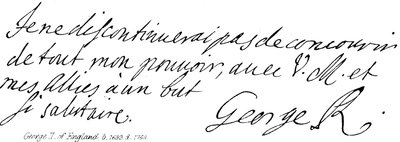 Je ne discontinuerai pas de concourir
de tout mon pouvoir, avec V. M. et
mes Alliés à un but
si salutaire.
George R.
George I. of England b. 1660. d.